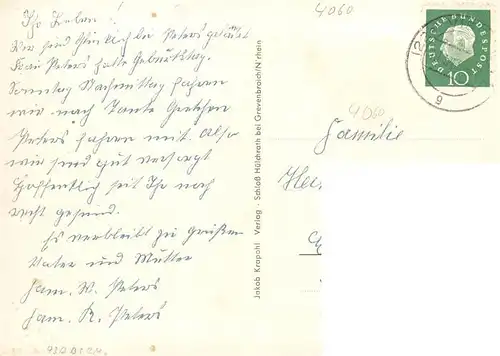 Ihr Lieben!
Wir sind glücklich bei Peters gelandet
Frau Peters hatte Geburtstag.
Sonntag Nachmittag fahren
wir nach Tante Gretchen
Peters fahren mit. Also
wir sind gut versorgt
Hoffentlich seit Ihr noch
recht gesund.
Es verbleibt zu grüßen
Vater und Mutter
Fam. W. Peters
Fam. R. Peters
Jakob Krapohl Verlag - Schloß Hülchrath bei Grevenbroich/N'rhein
4060
DEUTSCHE BUNDESPOST
10
g
4060
Familie